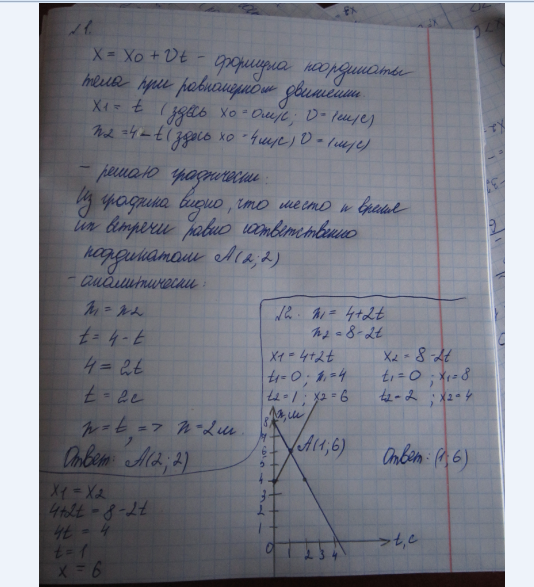 x = x0 + υt - формула координаты
тела при равномерном движении
x1 = t (здесь x0 = 0м/с; υ = 1м/с)
x2 = 4 - t (здесь x0 = 4м/с) υ = 1м/с)
- решаю графически:
Из графика видно, что место и время
их встречи равно соответственно
координатам A(2;2)
- аналитически:
x1 = x2
t = 4 - t
4 = 2t
t = 2c
x = t, => x = 2м
Ответ: A(2;2)
x1 = 4+2t
x2 = 8-2t
x1 = 4+2t
t1=0; x1=4
t2=1; x2=6
x2 = 8-2t
t1=0; x1=8
t2=2; x2=4
x,м
8
7
6
5
4
3
2
1
0
1 2 3 4
t,c
A(1;6)
Ответ: (1;6)
x1 = x2
4+2t = 8-2t
4t = 4
t = 1
x = 6